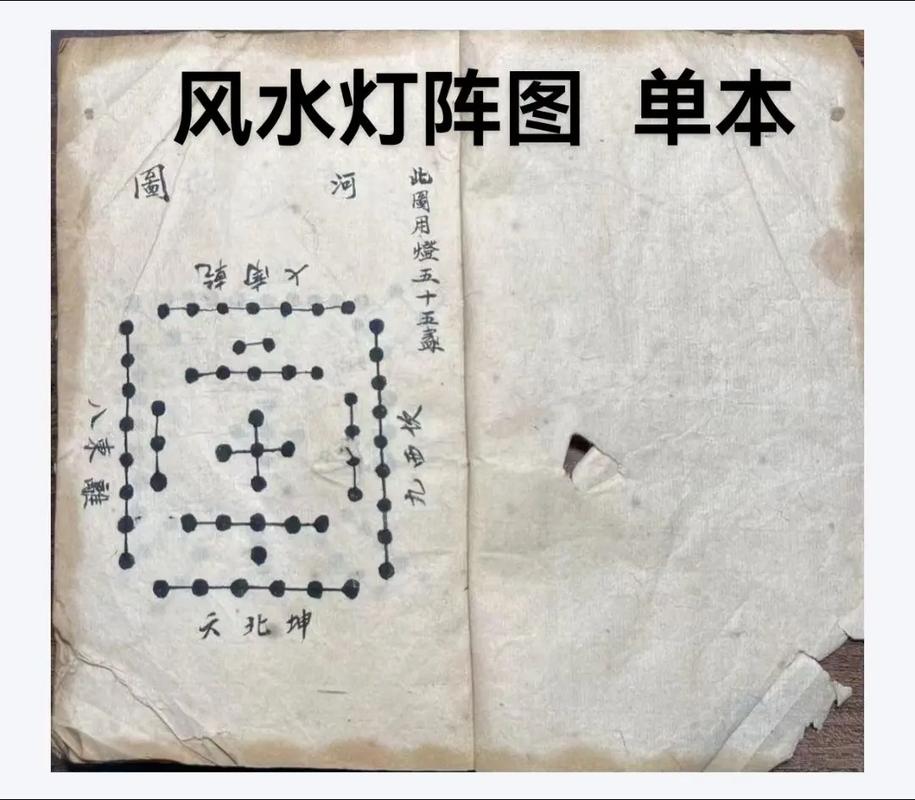 风水灯阵图 单本
此圖用燈五十五盞
河圖
七南乾
九西坎
八東離
六北坤